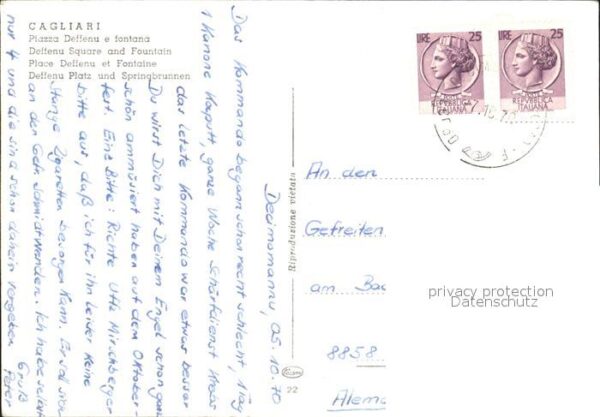 CAGLIARI
Piazza Deffenu e fontana
Deffenu Square and Fountain
Place Deffenu et Fontaine
Deffenu Platz und Springbrunnen
LIRE 25
REPUBBLICA
ITALIANA
LIRE 25
REPUBBLICA
ITALIANA
Decimomannu, 05.10.70
Das Kommando begann schon recht schlecht, 1 Tag
1 Kanone kaputt, ganze Woche Schießdienst
das letzte Kommando war etwas besser
Du wirst Dich mit Deinem Engel schon ganz
schön ammüsiert haben auf dem Oktober-
fest. Eine Bitte: Richte Uffz Hirschberger
bitte aus, daß ich für ihn leider keine
Stange Zigaretten besorgen kann. Er soll sich
an den Gefr. Schmidt wenden. Ich habe selbst
nur 4 und die sind schon daheim vergeben
Gruß
Peter
Riproduzione vietata
22
An den
Gefreiten
am
8858
privacy protection
Datenschutz